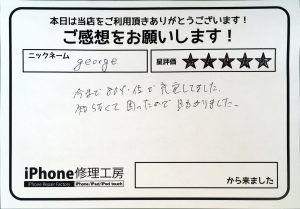 本日は当店をご利用頂きありがとうございます!
ご感想をお願いします!
ニックネーム
george
星評価
★★★★★
今まで 80%位で充電してました。
知らなくて 困ったので 助かりました。
iPhone修理工房
iPhone Repair Factory
iPhone/iPad/iPod touch
から来ました